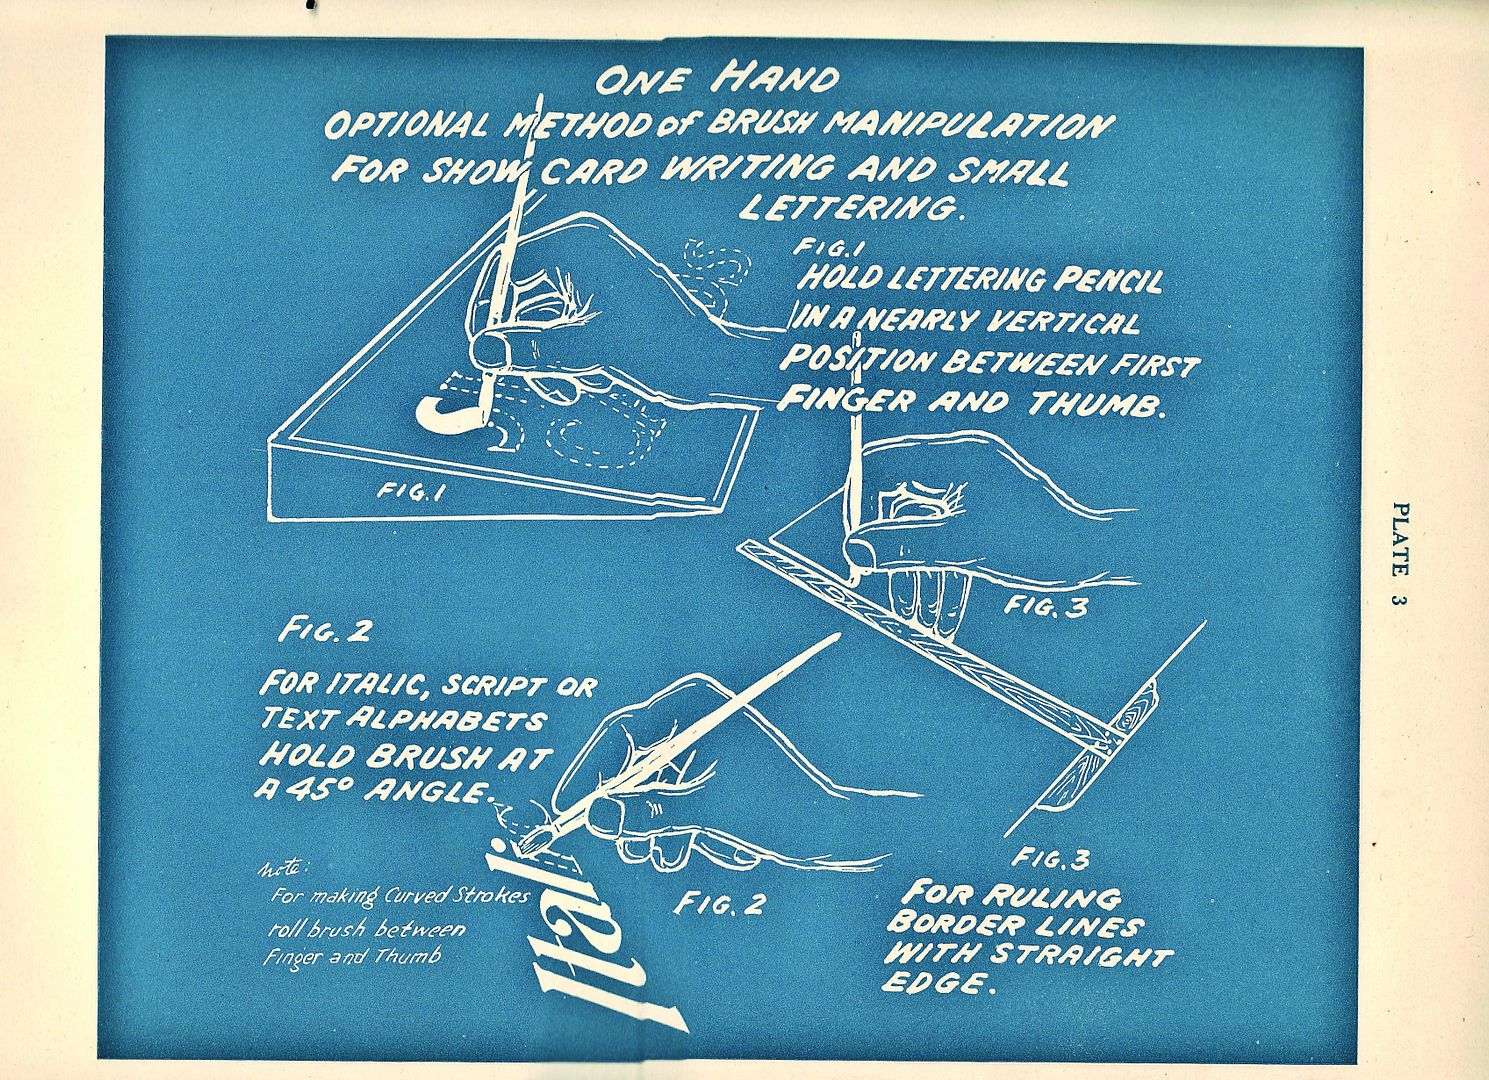 ONE HAND
OPTIONAL METHOD of BRUSH MANIPULATION
FOR SHOW CARD WRITING AND SMALL
LETTERING.
FIG.1
HOLD LETTERING PENCIL
IN A NEARLY VERTICAL
POSITION BETWEEN FIRST
FINGER AND THUMB.
FIG.1
FIG. 3
FIG. 2
FOR ITALIC, SCRIPT OR
TEXT ALPHABETS
HOLD BRUSH AT
A 45° ANGLE.
note:
For making Curved Strokes
roll brush between
Finger and Thumb
Itali
FIG. 2
FIG.3
FOR RULING
BORDER LINES
WITH STRAIGHT
EDGE.
PLATE 3